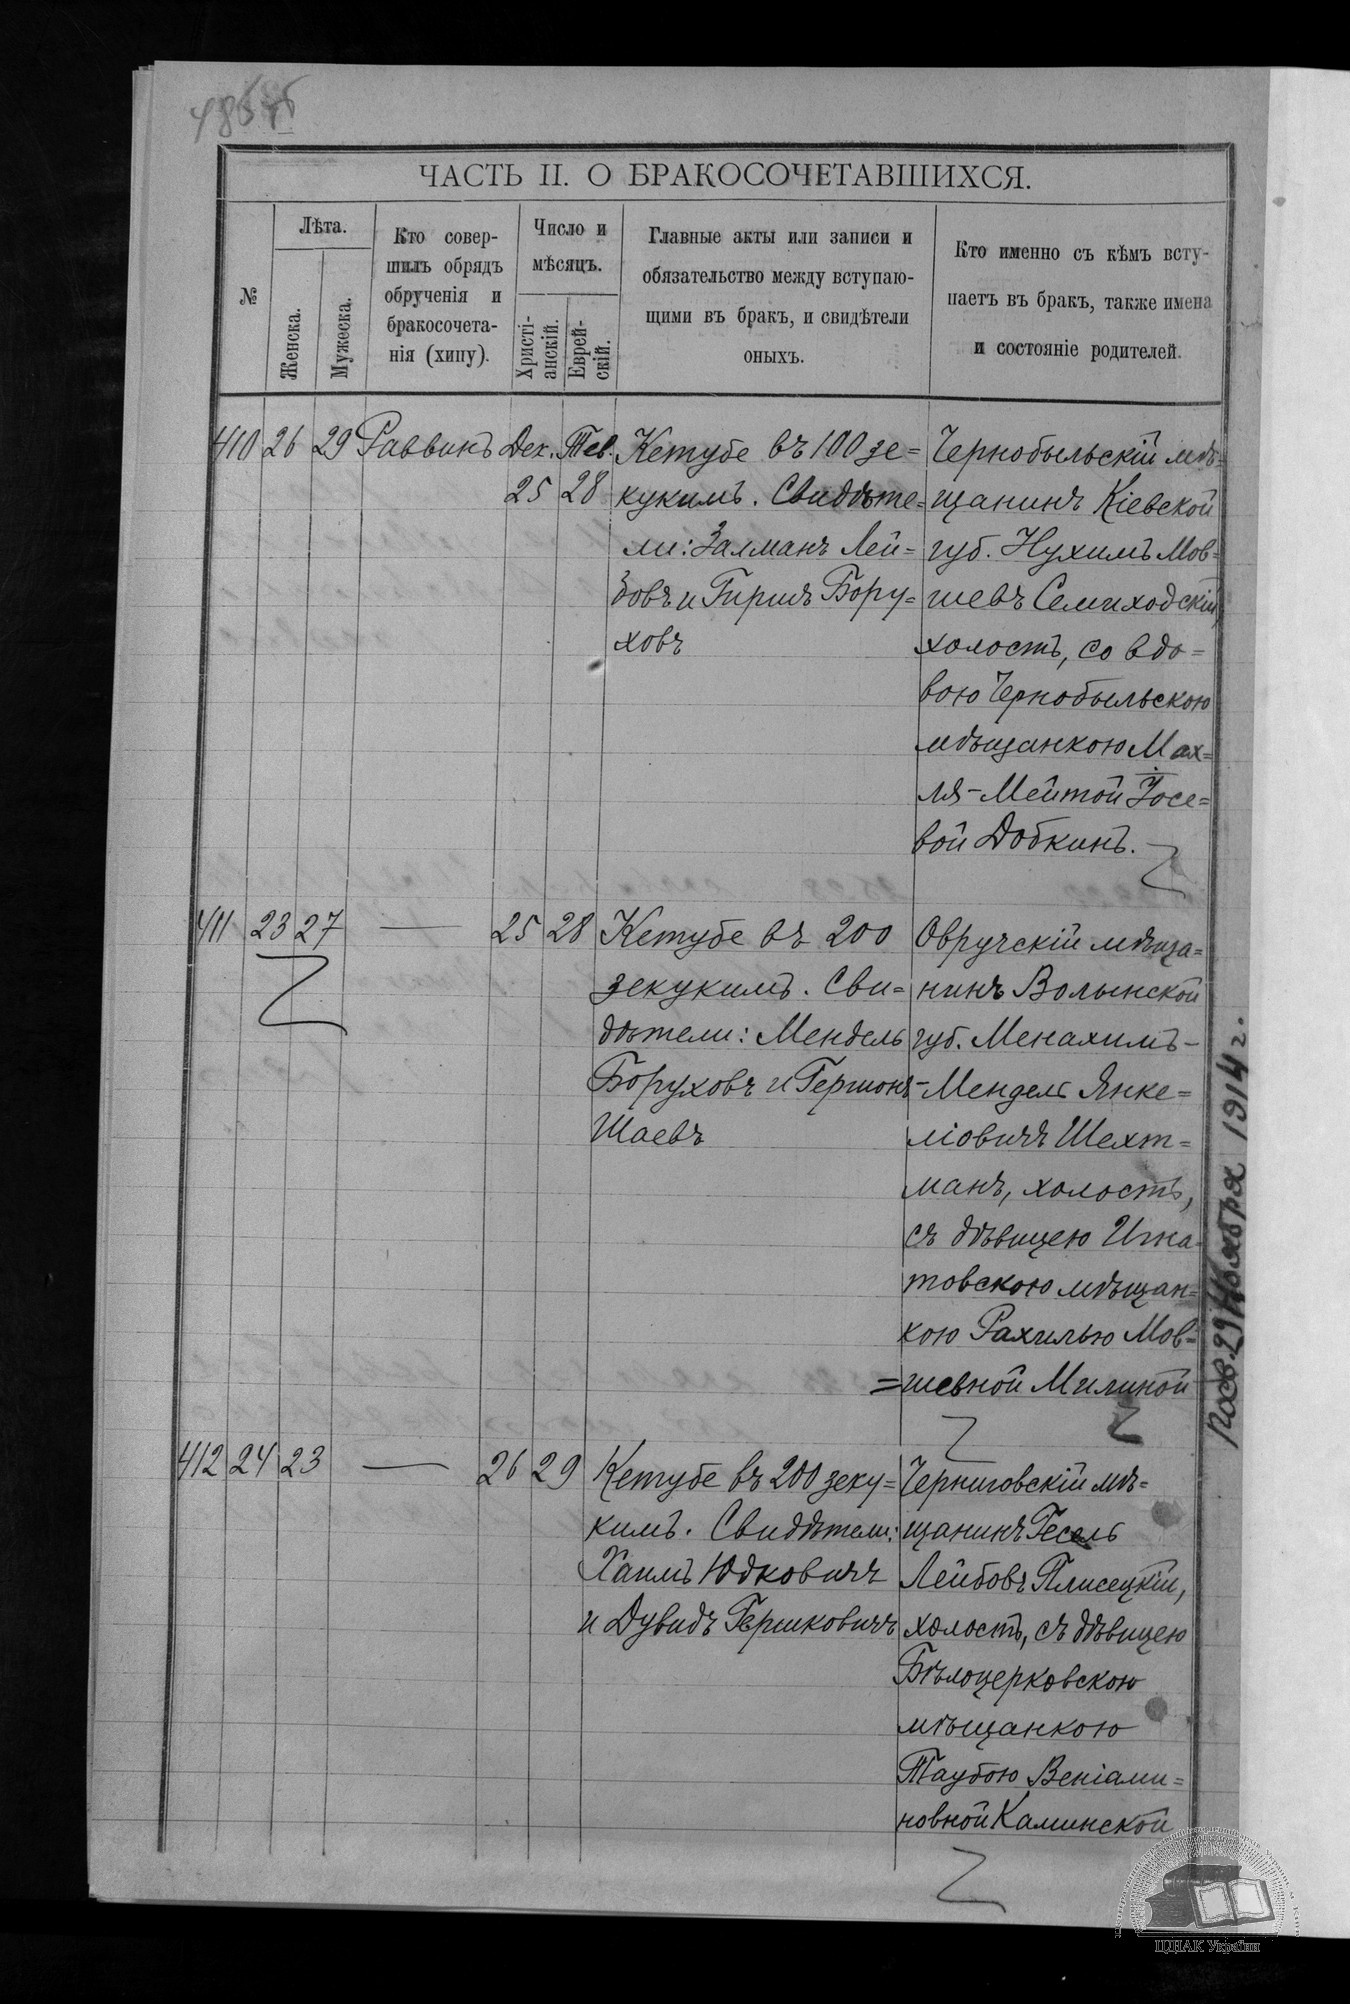 ЧАСТЬ II. О БРАКОСОЧЕТАВШИХСЯ.
№
Лѣта.
Женска.
Мужеска.
Кто совер-
шилъ обрядъ
обрученія и
бракосочета-
нія (хипу).
Число и
мѣсяцъ.
Христі-
анскій.
Еврей-
скій.
Главные акты или записи и
обязательство между вступаю-
щими въ бракъ, и свидѣтели
оныхъ.
Кто именно съ кѣмъ всту-
паетъ въ бракъ, также имена
и состояніе родителей.
410 26 29 Раввинъ Дек. Тев.
25 28
Кетубе въ 100 зе=
кукимъ. Свидѣте=
ли: Залманъ Лей=
бовъ и Гиршъ Бору=
ховъ
Чернобыльскій мѣ=
щанинъ Кіевской
губ. Нухимъ Мов=
шевъ Семиходскій,
холостъ, со вдо=
вою Чернобыльскою
мѣщанкою Мах=
ля-Мейтой Іосе=
вой Добкинъ.
411 23 27 — 25 28
Кетубе въ 200
зекукимъ. Сви=
дѣтели: Мендель
Боруховъ и Гершонъ
Шаевъ
Овручскій мѣща=
нинъ Волынской
губ. Менахимъ-
-Мендель Янке=
ліовичъ Шехт=
манъ, холостъ,
съ дѣвицею Игна
товскою мѣщан=
кою Рахилью Мов=
=шевной Милиной
412 24 23 — 26 29
Кетубе въ 200 зеку=
кимъ. Свидѣтели:
Хаимъ Юдковичъ
и Дувидъ Гершковичъ
Черниговскій мѣ=
щанинъ Гесель
Лейбовъ Плисецкій,
холостъ, съ дѣвицею
Бѣлоцерковскою
мѣщанкою
Таубою Веніами=
новной Каминской
29 Ноября 1914 г.
ЦДІАК України